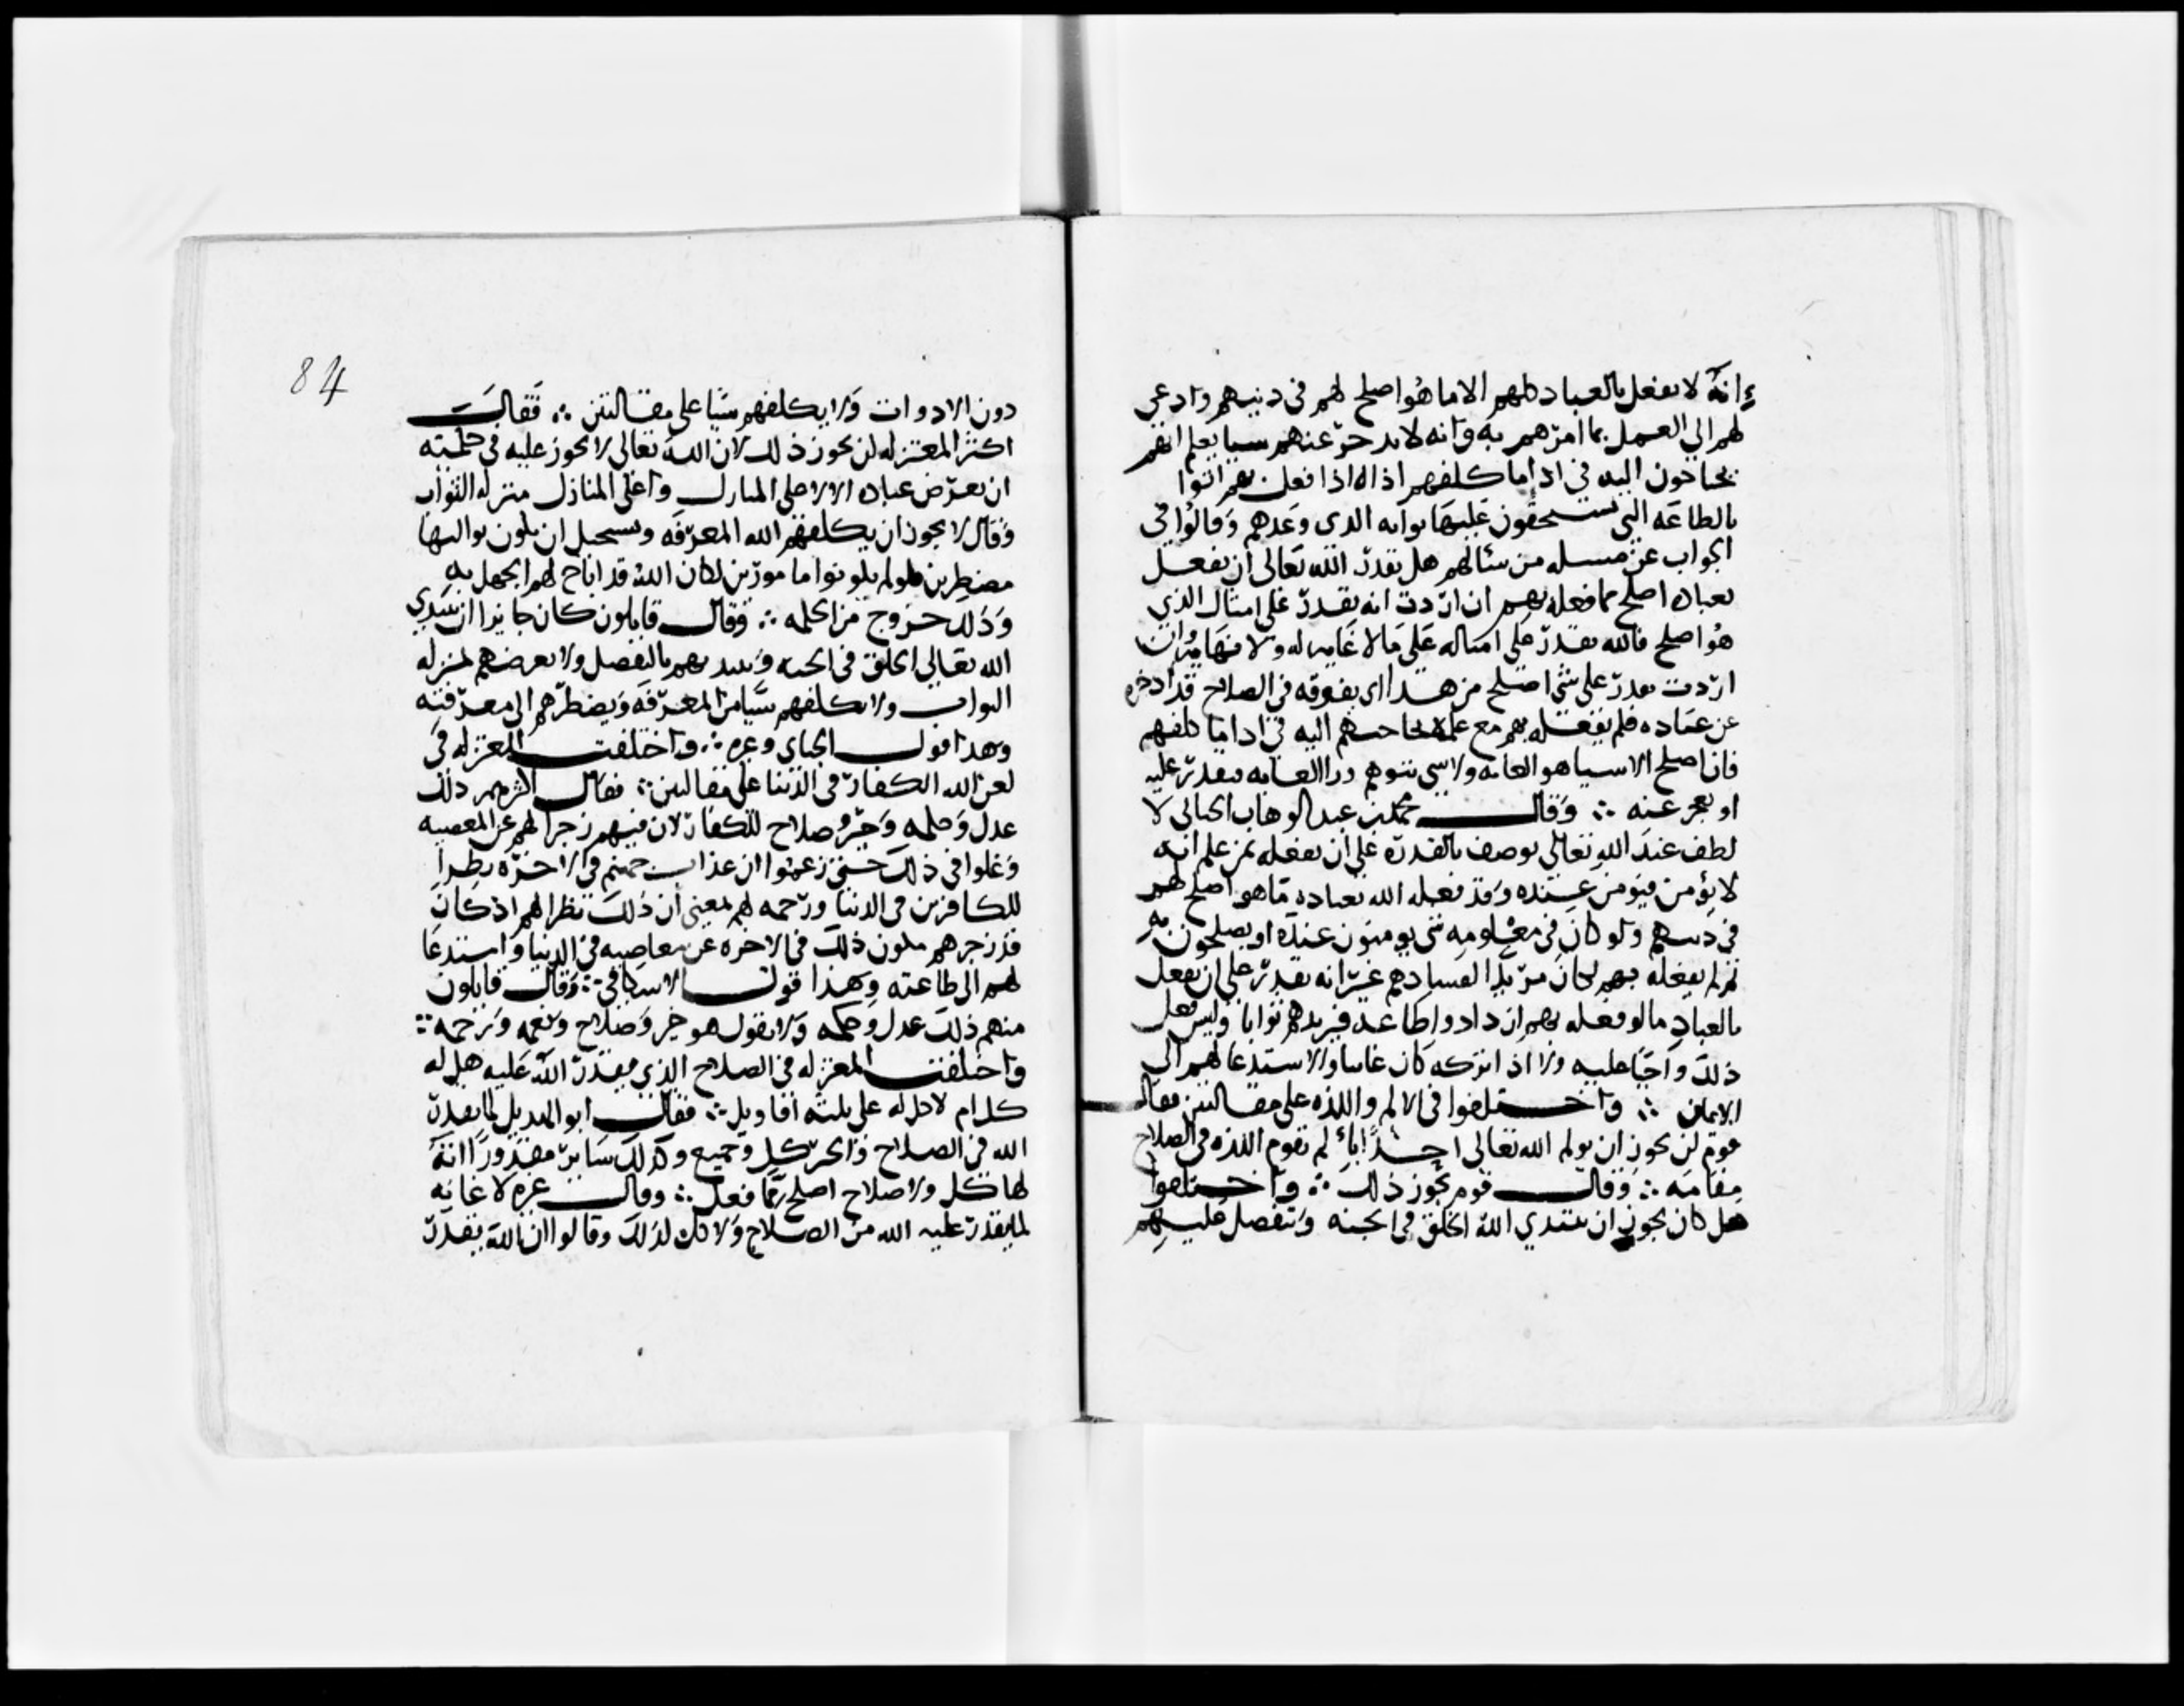 انه لا يفعل بالعباد كلهم الا ما هو اصلح لهم في دينهم وادعى
لهم الى العمل بما امرهم به وانه لا يدخر عنهم شيا يعلم انهم
يحتاجون اليه في اداما كلفهم اداه اذا فعل بهم اتوا
بالطاعه التي يستحقون عليها ثوابه الذي وعدهم وقالوا في
الجواب عن مسله من سئالهم هل يقدر الله تعالى ان يفعل
بعباده اصلح مما فعله بهم ان اردت انه يقدر على امثال الذي
هو اصلح فالله يقدر على امثاله على ما لا غايه له ولا نهايه وان
اردت يقدر على شى اصلح من هذا اى يفوقه في الصلاح قد ادخره
عن عباده فلم يفعله بهم مع علمه بحاجتهم اليه في اداما كلفهم
فان اصلح الاشيا هو الغايه ولا شي يتوهم ورا الغايه فيقدر عليه
او يعجز عنه ∴ وقال محمد بن عبد الوهاب الجبائى لا
لطف عند الله تعالى يوصف بالقدره على ان يفعله بمن علم انه
لا يؤمن فيومن عنده وقد فعل الله بعباده ما هو اصلح لهم
في دينهم ولو كان في معلومه شى يومنون عنده او يصلحون به
ثم لم يفعله بهم لكان مريدا لفسادهم غير انه يقدر على ان يفعل
بالعباد ما لو فعله بهم ازدادوا طاعه فيزيدهم ثوابا وليس فعل
ذلك واجبا عليه ولا اذا تركه كان عابثا والاستدعا لهم الى
الايمان ∴ واختلفوا في الالم واللذه على مقالتين فقال
قوم لن يجوز ان يولم الله تعالى احدا بالم تقوم اللذه في الصلاح
مقامه ∴ وقال قوم يجوز ذلك ∴ واختلفوا
هل كان يجوز ان يبتدي الله الخلق في الجنه ويتفضل عليهم
84
دون الادوات ولا يكلفهم شيا على مقالتين ∴ فقالت
اكثر المعتزله لن يجوز ذلك لان الله تعالى لا يجوز عليه في حكمته
ان يعرض عباده الا لاعلى المنازل واعلى المنازل منزله الثواب
وقال لا يجوز ان يكلفهم الله المعرفه ويستحيل ان يكونوا اليها
مضطرين فلو لم يكونوا مامورين لكان الله قد اباح لهم الجهل به
وذلك خروج من الحكمه ∴ وقال قايلون كان جايزا ان يبتدي
الله تعالى الخلق في الجنه ويبتديهم بالتفضل ولا يعرضهم لمنزله
الثواب ولا يكلفهم شيا من المعرفه ويضطرهم الى معرفته
وهذا قول الجباي وغيره ∴ واختلفت المعتزله في
لعن الله الكفار في الدنيا على مقالتين ∴ فقال اكثرهم ذلك
عدل وحكمه وخير وصلاح للكفار لان فيهم زجرا لهم عن المعصيه
وغلوا في ذلك حتى زعموا ان عذاب جهنم في الاخره نظرا
للكافرين في الدنيا ورحمه لهم بمعنى ان ذلك نظرا لهم اذ كان
قد زجرهم بكون ذلك في الاخره عن معاصيه في الدنيا واستدعا
لهم الى طاعته وهذا قول الاسكافي ∴ وقال قايلون
منهم ذلك عدل وحكمه ولا نقول هو خير وصلاح ونعمه ورحمه ∴
واختلفت المعتزله في الصلاح الذي يقدر الله عليه هل له
كل ام لا كل له على ثلثه اقاويل ∴ فقال ابو الهذيل لما يقدر
الله من الصلاح والخير كل وجميع وكذلك ساير مقدوراته
لها كل ولا صلاح اصلح مما فعل ∴ وقال غيره لا غايه
لما يقدر عليه الله من الصلاح ولا كل لذلك وقالوا ان الله يقدر